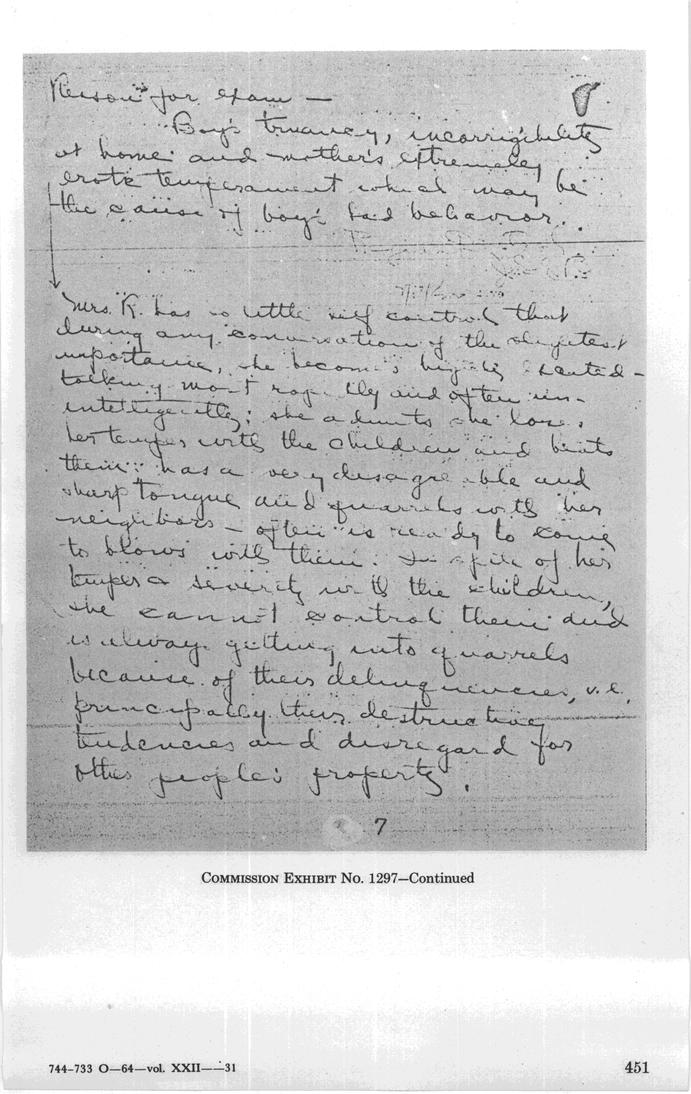 Reason for exam —
Boy's truancy, incorrigibility
at home and mother's extremely
temperament which may be
the cause of boy's bad behavior.
Mrs. R. has so little self control that
during any conversation of the slightest
importance, she becomes highly excited –
talking most rapidly and often un-
intelligently; she admits she loses
her temper with the children and beats
them; has a very disagreeable and
sharp tongue and quarrels with her
neighbors – often is ready to come
to blows with them. In spite of her
temper & severity with the children,
she cannot control them and
is always getting into quarrels
because of their delinquencies,
principally their destructive
tendencies and disregard for
other people's property.
7
COMMISSION EXHIBIT No. 1297—Continued
744-733 O—64—vol. XXII——31
451